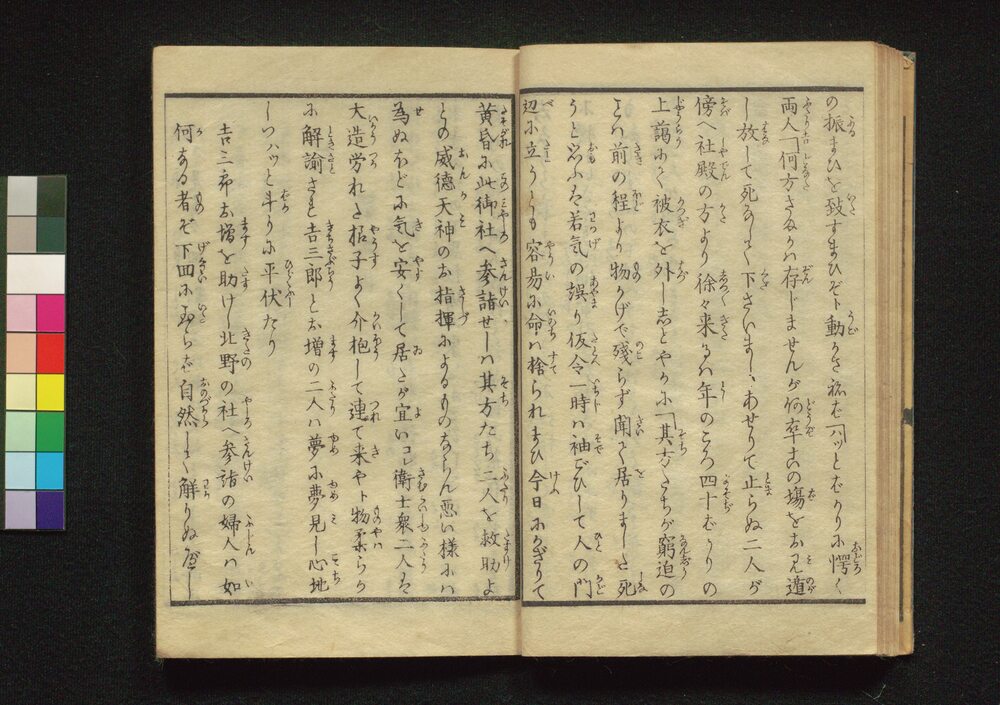 の振まひを致すまひぞト動かさねば「ハツとばかりに愕く
両人「何方さまかは存じませんが何卒此の場をお見遁
し放して死なして下さいまし、わせりて止らぬ二人が
傍へ社殿の方より徐々来るは年のころ四十ばかりの
上﨟にて被衣を外ししとやかに「其方たちが窮迫の
ことは前の程より物かげで残らず聞て居りました死
うと思ふは若気の誤り仮令一時は袖ごひして人の門
辺に立うとも容易に命は捨られまひ今日にかぎりて
黄昏に此御社へ参詣せしは其方たち二人を救助よ
との威徳天神のお指揮によるものならん悪い様には
為ぬほどに気を安くして居たが宜いコレ衛士衆二人は
大造労れた招子よく介抱して連て来やト物柔らか
に解諭され吉三郎とお増の二人は夢に夢見し心地
しつハツと斗りに平伏たり
吉三郎お増を助けし北野の社へ参詣の婦人は如
何なる者ぞ下回に到らば自然して解りぬべし